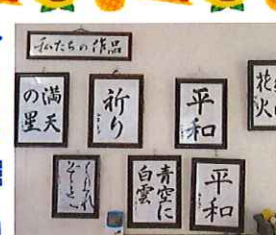 私たちの作品
満天
の星
祈り
平和
花火
青空に
白雲
平和